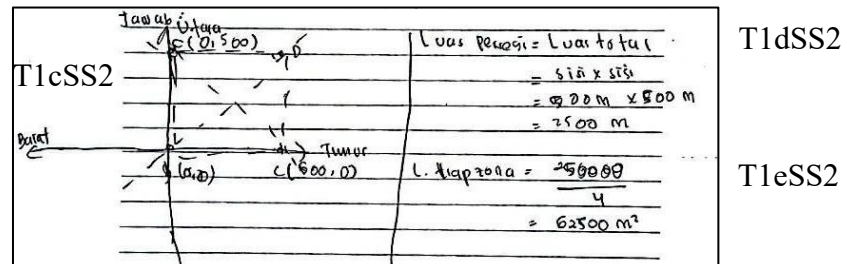 Jawab
Utara
(0,500)
T1cSS2
Barat
Timur
(0,0)
Luas persegi = Luas total
= sisi x sisi
= 500 m x 500 m
= 2500 m
L. tiap zona = 250000
4
= 62500 m²
T1dSS2
T1eSS2